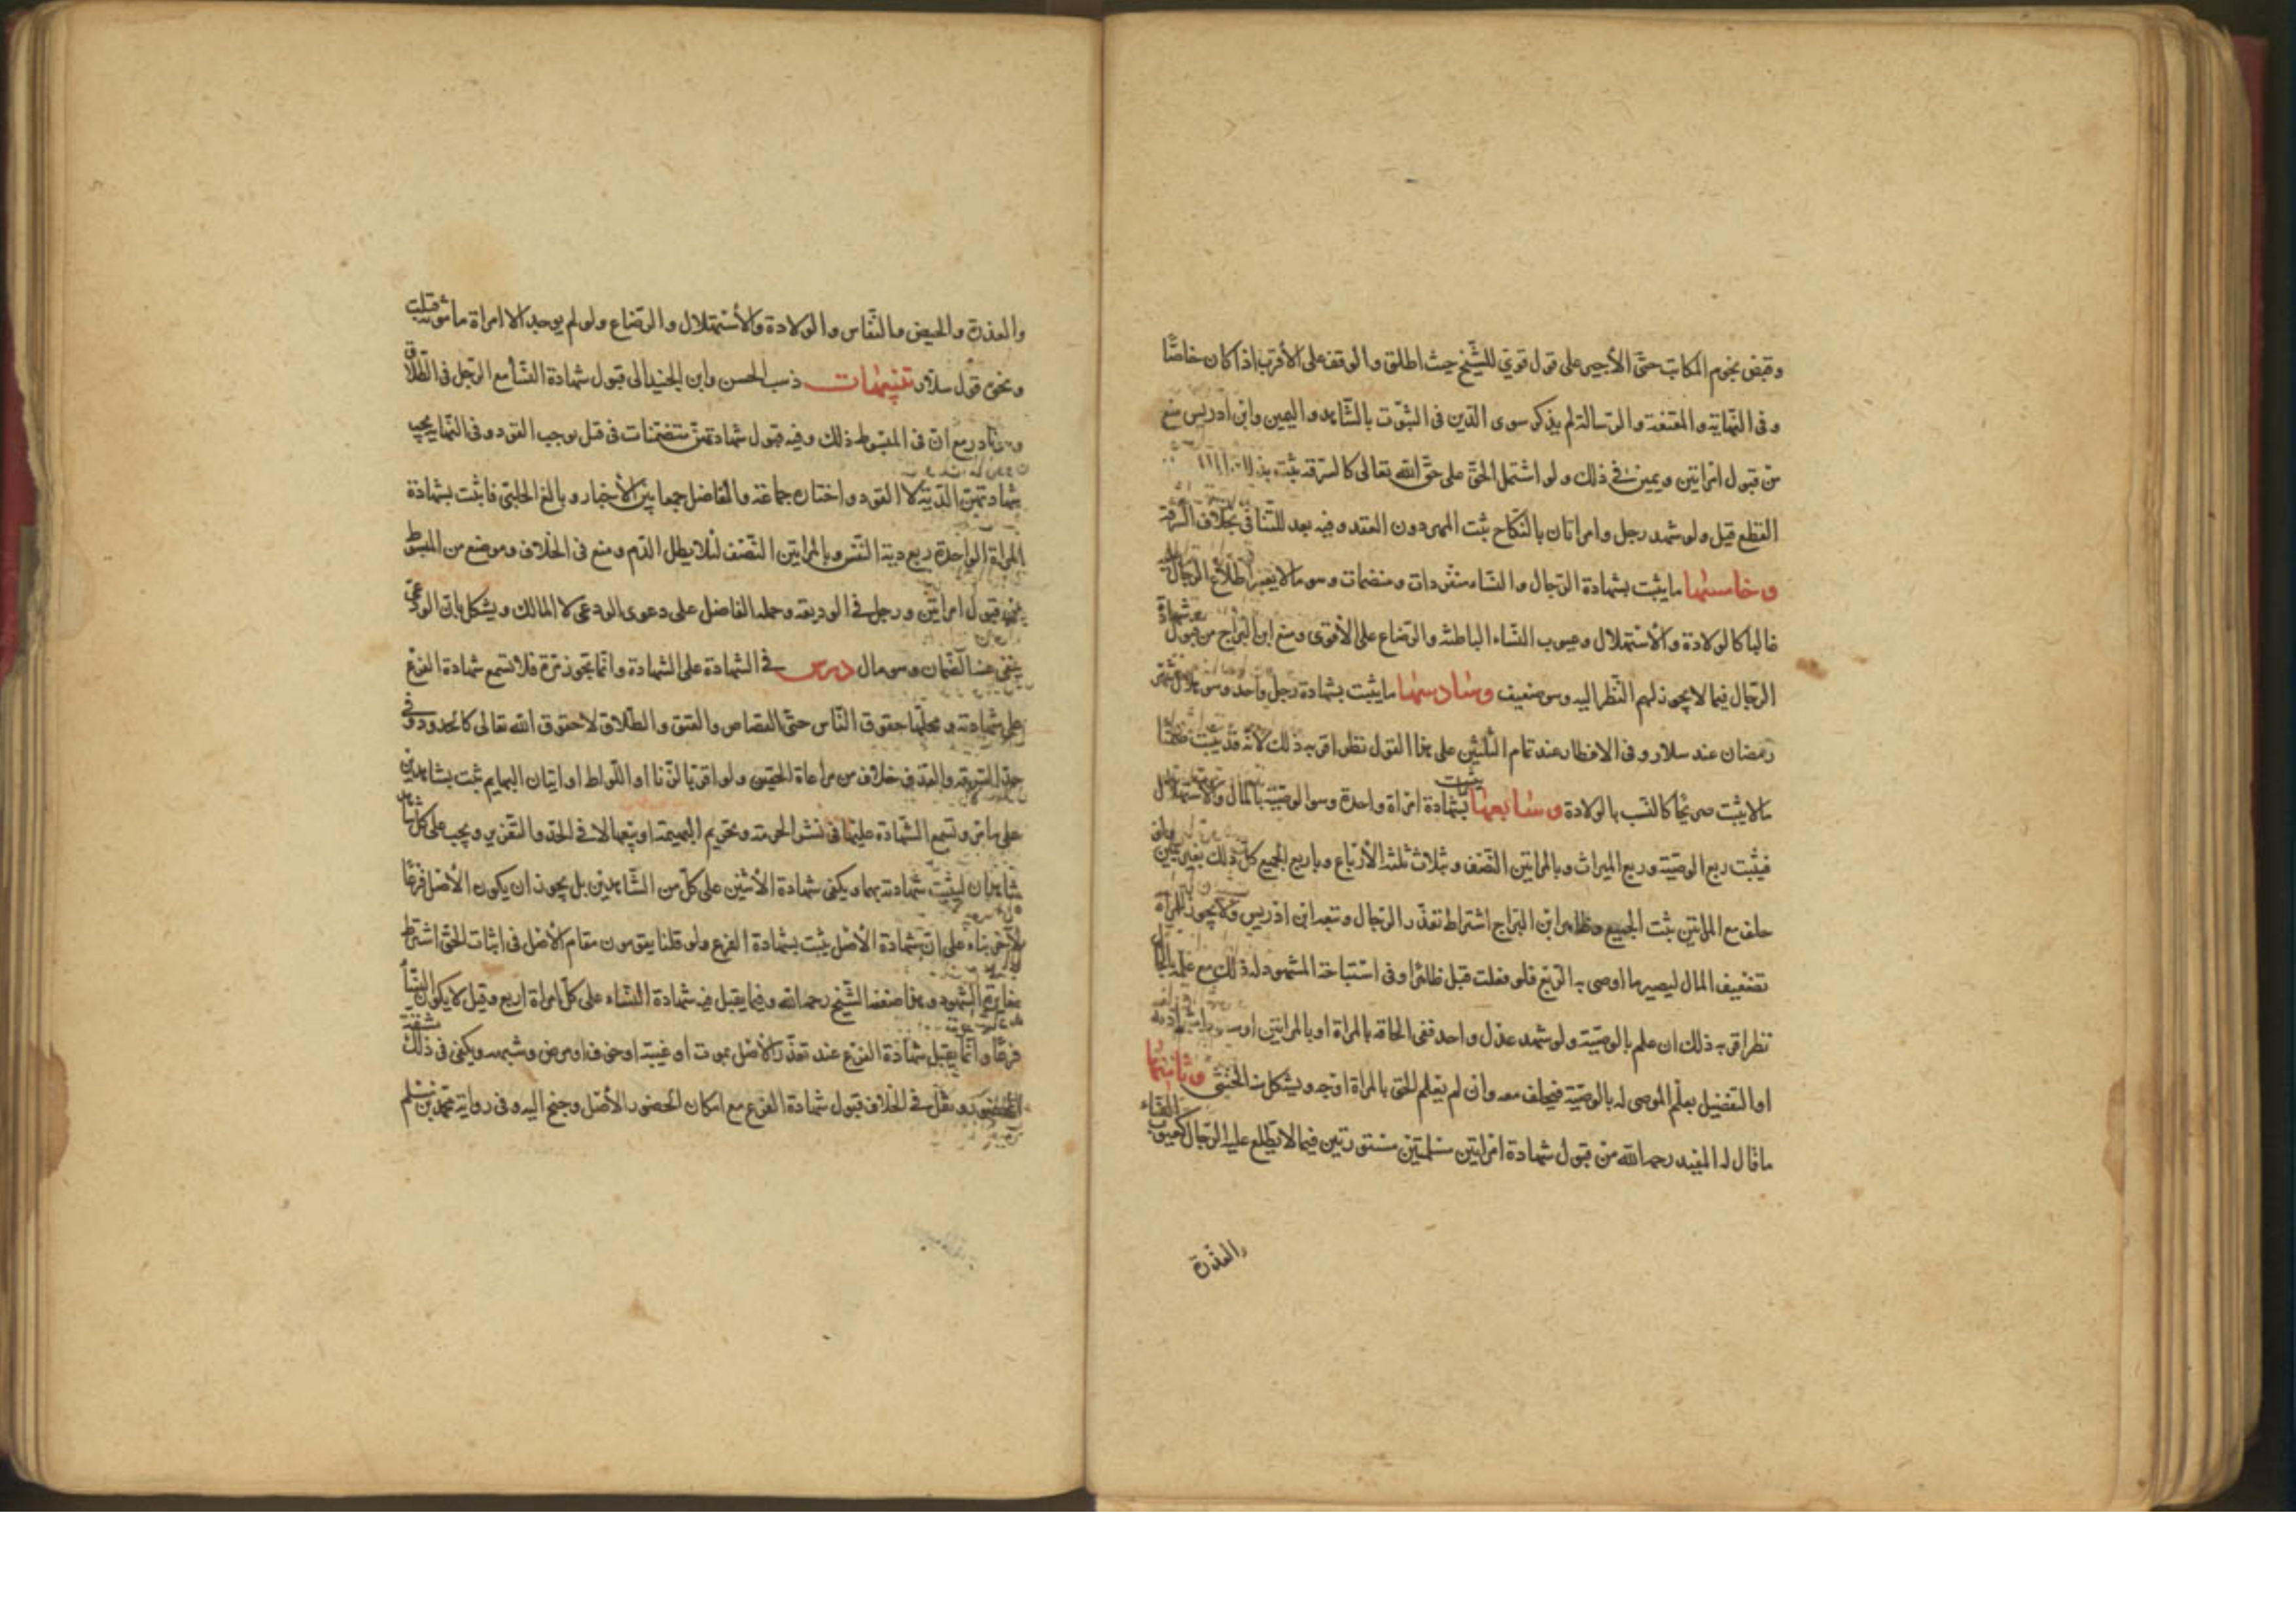 وقبض نجوم المكاتب حتى الأخير على قول قوي للشيخ حيث اطلق والوقف على الأقرب اذا كان خاصّا
وفى النهاية والمقنعة والرسالة لم يذكر سوى الدين فى الثبوت بالشاهد واليمين وابن ادريس منع
من قبول امراتين ويمين فى ذلك ولو اشتمل الحق على حق الله تعالى كالسرقة يثبت
القطع قيل ولو شهد رجل وامراتان بالنكاح ثبت المهر دون العقد وفيه بعد للتنافى بخلاف السرقة
وخامسها ما يثبت بشهادة الرجال والنساء منفردات ومنضمات وهو ما لا يعسر اطلاع الرجال عليه
غالبا كالولادة والأستهلال وعيوب النساء الباطنة والرضاع على الأقوى ومنع ابن البراج من قبول شهادة
الرجال فيما لا يجوز لهم النظر اليه وهو ضعيف وسادسها ما يثبت بشهادة رجل واحد وهو هلال شهر
رمضان عند سلار وفى الافطار عند تمام الثلثين على هذا القول نظر اقربه ذلك لانه قد يثبت ضمنا
ما لا يثبت صريحا كالنسب بالولادة وسابعها يثبت بشهادة امراة واحدة وهو الوصية بالمال والاستهلال
فيثبت ربع الوصية وربع الميراث وبالمراتين النصف وبثلاث ثلثة الأرباع وباربع الجميع كل ذلك بغير يمين ولو
حلف مع المراتين ثبت الجميع وظاهر ابن البراج اشتراط تعذر الرجال وتبعه ابن ادريس ولا يجوز للمراة
تضعيف المال ليصير ما اوصى به الربع فلو فعلت قبل ظاهرا وفى استباحة المشهود له ذلك مع علمه بالحال
نظر اقربه ذلك ان علم بالوصية ولو شهد عدل واحد ففى الحاقه بالمراة او بالمراتين او سقوط شهادته
او التفصيل بعلم الموصى له بالوصية فيحلف معه وان لم يعلم الحق بالمراة اوجه ويشكل منه الخنثى وثامنها
ما قال له المفيد رحمه الله من قبول شهادة امراتين مسلمتين مستورتين فيما لا يطلع عليه الرجال كعيوب النساء
والعذرة
والعذرة والحيض والنفاس والولادة والأستهلال والرضاع ولو لم يوجد الا امراة مامونة قبلت
ونحوه قول سلار تنبيهات ذهب الحسن وابن الجنيد الى قبول شهادة النساء مع الرجل فى الطلاق
وهو نادر مع ان فى المبسوط ذلك وفيه قبول شهادتهن منضمات فى قتل يوجب القود وفى النهاية يجب
بشهادتهن الدية لا القود واختاره جماعة والفاضل جمعا بين الأخبار وبالغ الحلبى فاثبت بشهادة
المراة الواحدة ربع دية النفس وبالمراتين النصف لئلا يطل الدم ومنع فى الخلاف وموضع من المبسوط
من قبول امراتين ورجل فى الوديعة وحمله الفاضل على دعوى الودعى لا المالك ويشكل بان الودعى
ينفى عنه الضمان وهو مال درس فى الشهادة على الشهادة وانما تجوز مرة فلا تسمع شهادة الفرع
على شهادته ومحلها حقوق الناس حتى القصاص والعتق والطلاق لا حقوق الله تعالى كالحدود وفى
حد السرقة والقذف خلاف من مراعاة الحقين ولو اقر بالزنا او اللواط او اتيان البهايم ثبت بشاهدين
على ما مر وتسمع الشهادة عليها فى نشر الحرمة وتحريم البهيمة او بيعها لا فى الحد والتعزير ويجب على كل شاهد
شاهدان ليثبت شهادته بهما ويكفى شهادة الأثنين على كل من الشاهدين بل يجوز ان يكون الأصل فرعا
لآخر بناء على ان شهادة الأصل يثبت بشهادة الفرع ولو قلنا يقومون مقام الأصل فى اثبات الحق اشترط
مغايرة الشهود وهذا ضعفه الشيخ رحمه الله وفيما يقبل فيه شهادة النساء على كل امراة اربع وقيل لا يكون النساء
فرعا وانما يقبل شهادة الفرع عند تعذر الأصل بموت او غيبة او خوف او مرض وشبهه ويكفى فى ذلك مشقة
الحضور ونقل فى الخلاف قبول شهادة الفرع مع امكان الحضور الأصل وجنح اليه وفى رواية محمد بن مسلم